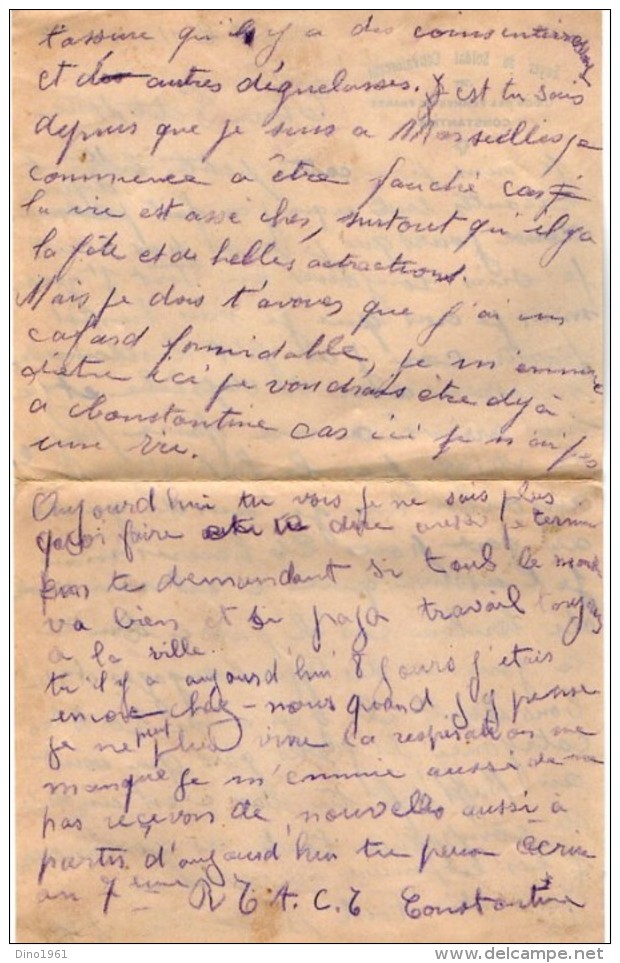 t'assure qu'il y a des
et des autres déguelasses. Et tu sais
depuis que je suis a Marseilles je
commence a être fauché cas
la vie est asse cher, surtout qu'il ya
la fête et de belles attractions.
Mais je dois t'avouer que j'ai un
cafard formidable, je m'ennuie
d'être ici je voudrais être déjà
a Constantine cas ici je n'ai pas
une vie.
Aujourd'hui tu vois je ne sais plus
quoi faire te dire aussi je termine
en te demandant si touls le monde
va bien et si papa travail toujours
a la ville.
tu il y a aujourd'hui 8 jours j'étais
encore chez-nous quand j'y pense
je ne peut plus vivre la respiration me
manque je m'ennuie aussi de ne
pas reçevoir de nouvelles aussi à
partir d'aujourd'hui tu peux écrire
au 7eme R T A. C. T Constantine
Dino1961